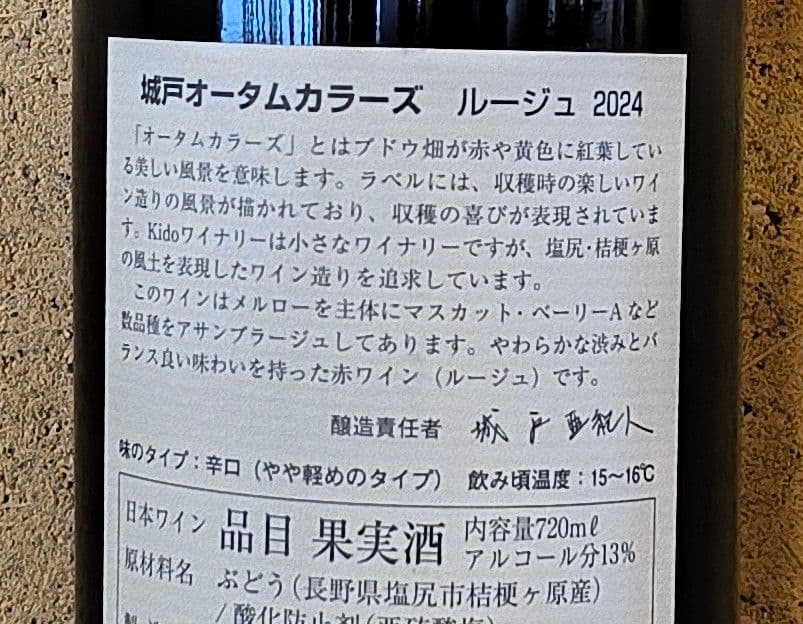 城戸オータムカラーズ ルージュ 2024
「オータムカラーズ」とはブドウ畑が赤や黄色に紅葉してい
る美しい風景を意味します。ラベルには、収穫時の楽しいワイ
ン造りの風景が描かれており、収穫の喜びが表現されていま
す。Kidoワイナリーは小さなワイナリーですが、塩尻・桔梗ヶ原
の風土を表現したワイン造りを追求しています。
このワインはメルローを主体にマスカット・ベーリーAなど
数品種をアサンブラージュしてあります。やわらかな渋みとバ
ランス良い味わいを持った赤ワイン（ルージュ）です。
醸造責任者 城戸亜紀人
味のタイプ：辛口（やや軽めのタイプ） 飲み頃温度：15～16℃
日本ワイン 品目 果実酒 内容量720mℓ
アルコール分13%
原材料名 ぶどう（長野県塩尻市桔梗ヶ原産）
/酸化防止剤（亜硫酸塩）